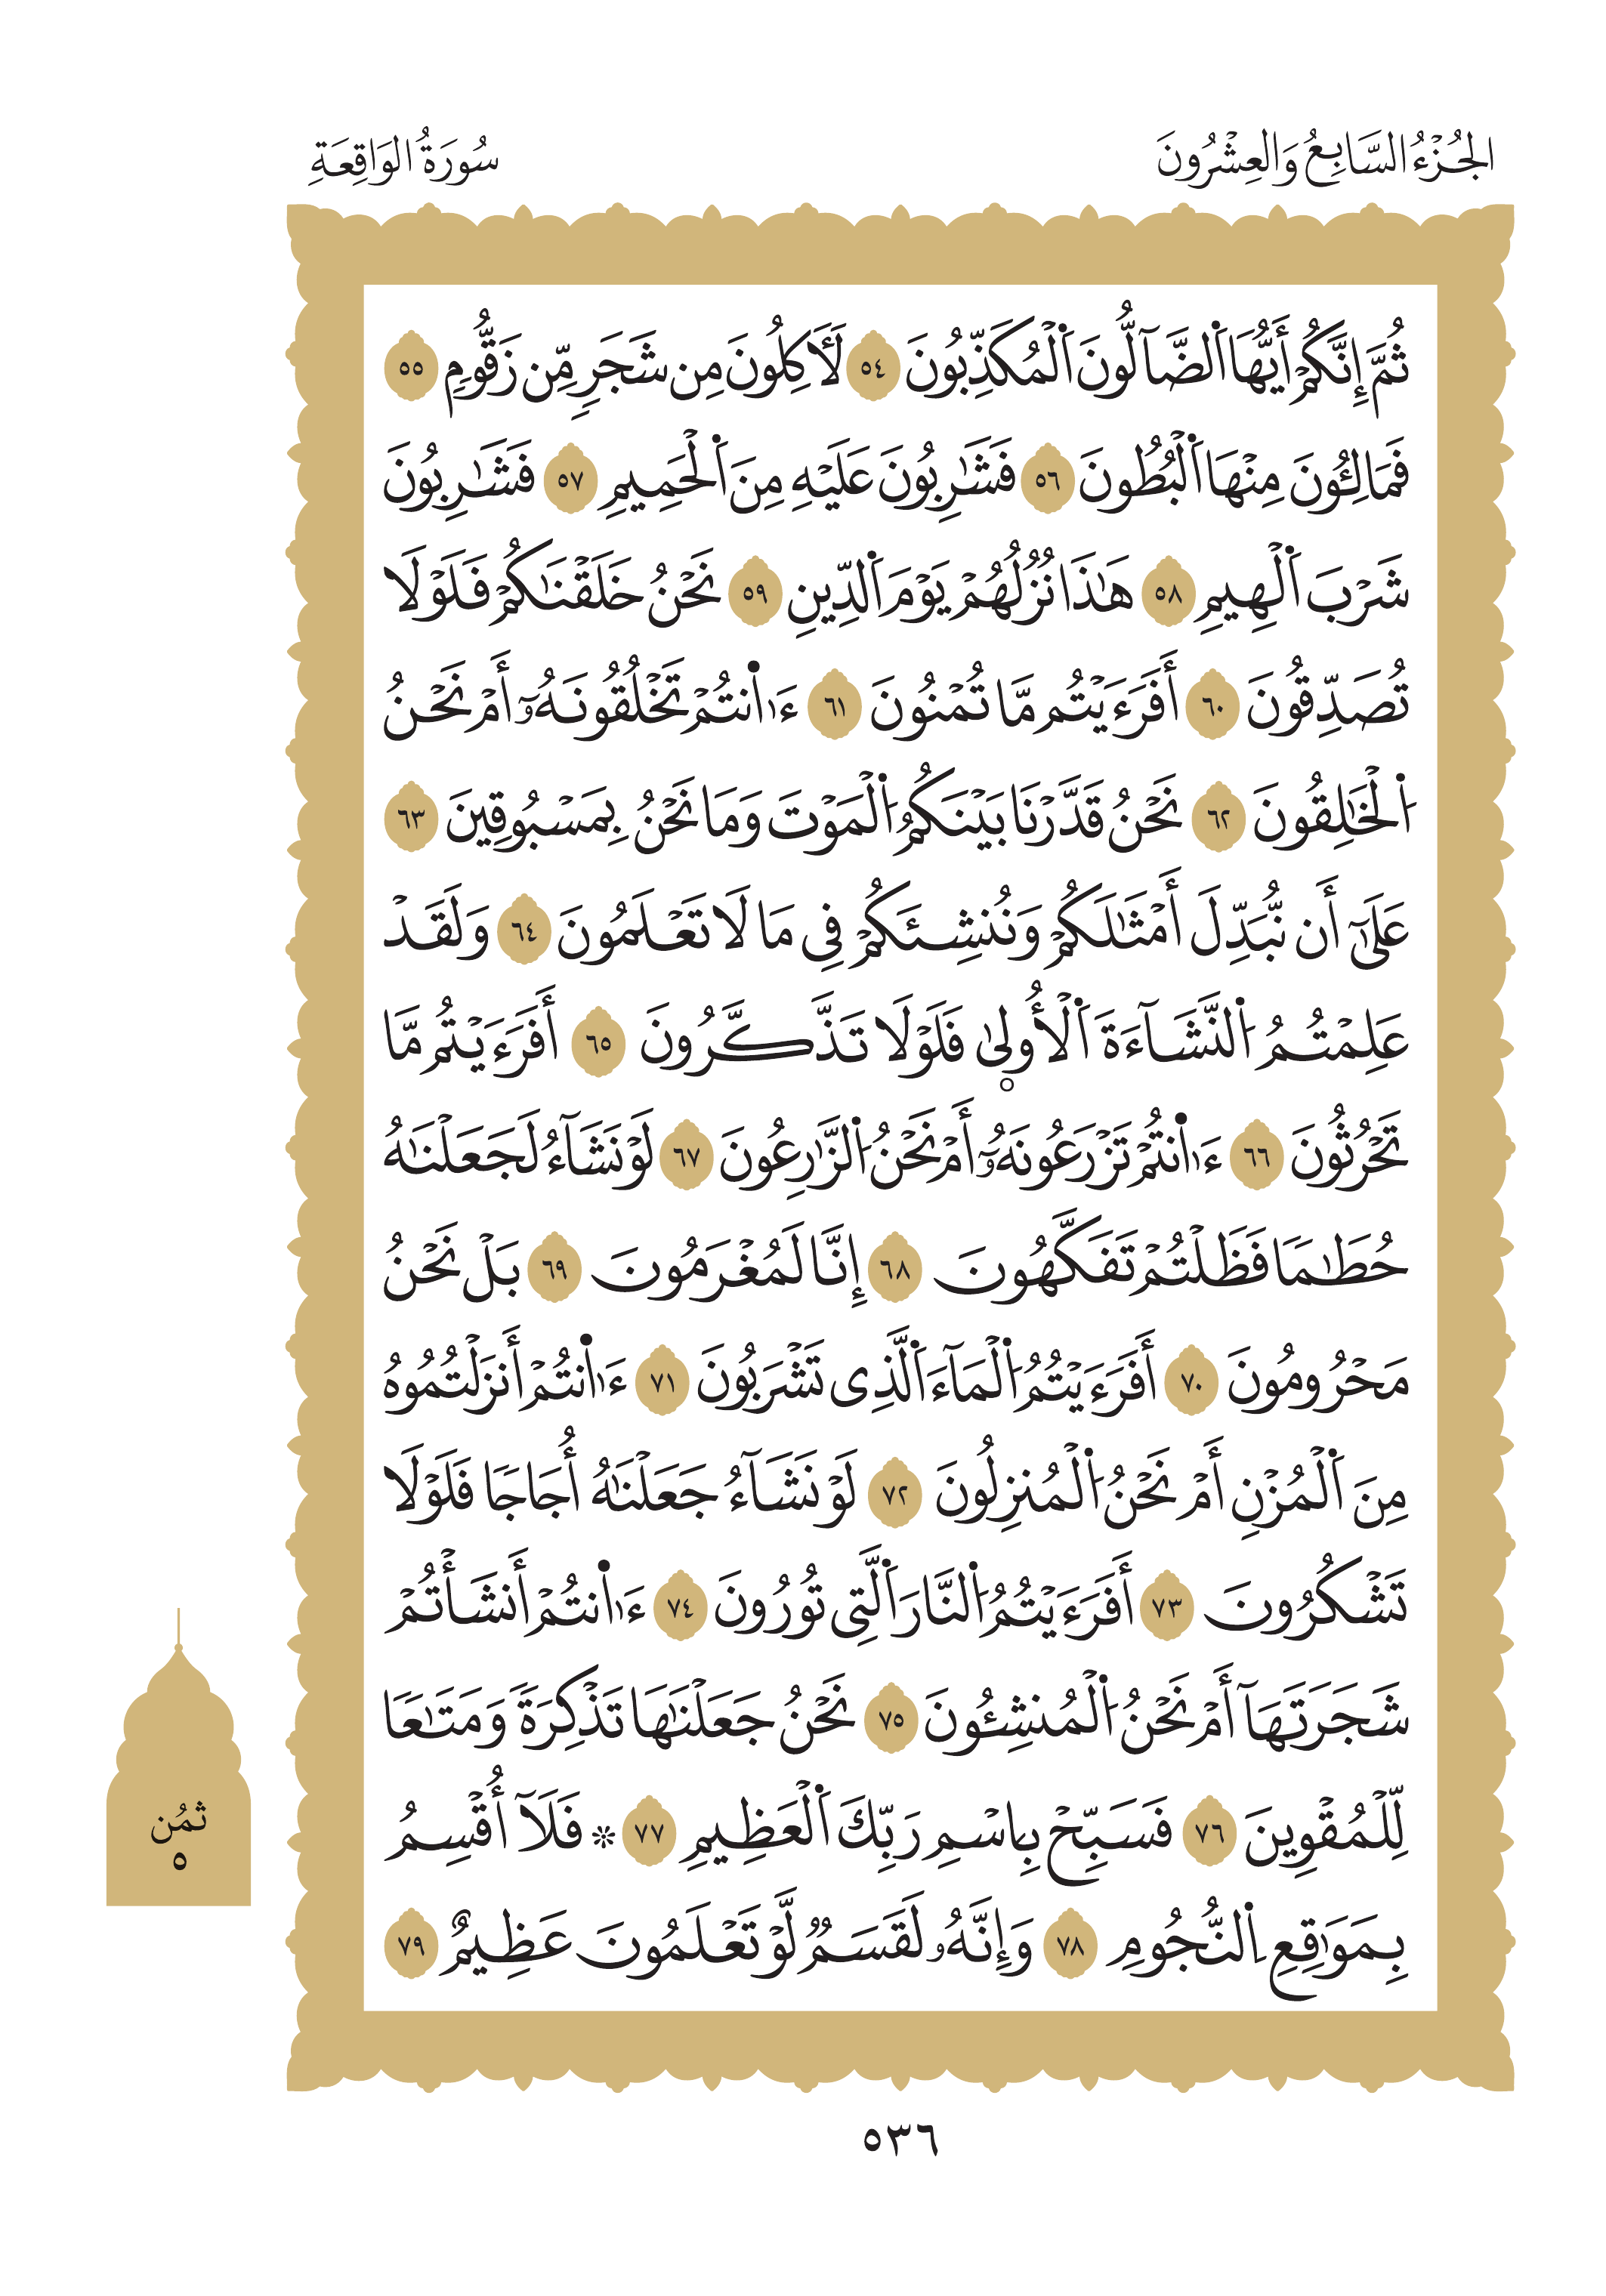 الجُزْءُ السَّابِعُ وَالعِشْرُونَ
سُورَةُ الوَاقِعَةِ
ثُمَّ إِنَّكُمْ أَيُّهَا اَ۬لضَّآلُّونَ اَ۬لْمُكَذِّبُونَ ٥٤ لَأَٓكِلُونَ مِن شَجَرٍ مِّن زَقُّومٍ ٥٥
فَمَالِـُٔونَ مِنْهَا اَ۬لْبُطُونَ ٥٦ فَشَٰرِبُونَ عَلَيْهِ مِنَ اَ۬لْحَمِيمِ ٥٧ فَشَٰرِبُونَ
شَرْبَ اَ۬لْهِيمِ ٥٨ هَٰذَا نُزُلُهُمْ يَوْمَ اَ۬لدِّينِ ٥٩ نَحْنُ خَلَقْنَٰكُمْ فَلَوْلَا
تُصَدِّقُونَ ٦٠ أَفَرَءَيْتُم مَّا تُمْنُونَ ٦١ ءَا۬نتُمْ تَخْلُقُونَهُۥٓ أَمْ نَحْنُ
اَ۬لْخَٰلِقُونَ ٦٢ نَحْنُ قَدَّرْنَا بَيْنَكُمُ اَ۬لْمَوْتَ وَمَا نَحْنُ بِمَسْبُوقِينَ ٦٣
عَلَىٰٓ أَن نُّبَدِّلَ أَمْثَٰلَكُمْ وَنُنشِئَكُمْ فِي مَا لَا تَعْلَمُونَ ٦٤ وَلَقَدْ
عَلِمْتُمُ اُ۬لنَّشَآءَةَ اَ۬لْأُولۭىٰ فَلَوْلَا تَذَّكَّرُونَ ٦٥ أَفَرَءَيْتُم مَّا
تَحْرُثُونَ ٦٦ ءَا۬نتُمْ تَزْرَعُونَهُۥٓ أَمْ نَحْنُ اُ۬لزَّٰرِعُونَ ٦٧ لَوْ نَشَآءُ لَجَعَلْنَٰهُ
حُطَٰمًا فَظَلْتُمْ تَفَكَّهُونَ ٦٨ إِنَّا لَمُغْرَمُونَ ٦٩ بَلْ نَحْنُ
مَحْرُومُونَ ٧٠ أَفَرَءَيْتُمُ اُ۬لْمَآءَ اَ۬لَّذِى تَشْرَبُونَ ٧١ ءَا۬نتُمْ أَنزَلْتُمُوهُ
مِنَ اَ۬لْمُزْنِ أَمْ نَحْنُ اُ۬لْمُنزِلُونَ ٧٢ لَوْ نَشَآءُ جَعَلْنَٰهُ أُجَاجًا فَلَوْلَا
تَشْكُرُونَ ٧٣ أَفَرَءَيْتُمُ اُ۬لنَّارَ اَ۬لَّتِى تُورُونَ ٧٤ ءَا۬نتُمْ أَنشَأْتُمْ
شَجَرَتَهَآ أَمْ نَحْنُ اُ۬لْمُنشِـُٔونَ ٧٥ نَحْنُ جَعَلْنَٰهَا تَذْكِرَةً وَمَتَٰعًا
لِّلْمُقْوِينَ ٧٦ فَسَبِّحْ بِاسْمِ رَبِّكَ اَ۬لْعَظِيمِ ٧٧ ۞ فَلَآ أُقْسِمُ
بِمَوَٰقِعِ اِ۬لنُّجُومِ ٧٨ وَإِنَّهُۥ لَقَسَمٌ لَّوْ تَعْلَمُونَ عَظِيمٌ ٧٩
ثمُن
٥
٥٣٦